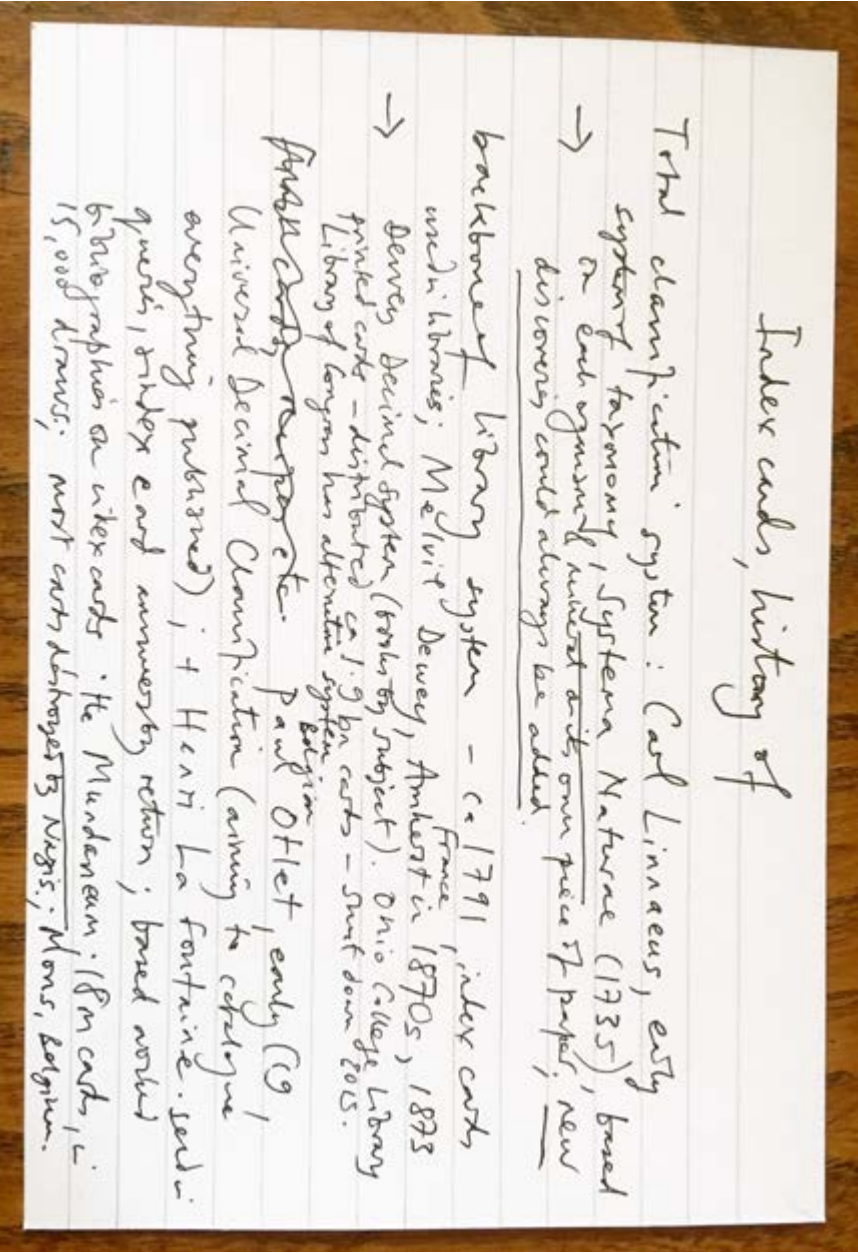 Index cards, history of
Total classification system: Carl Linnaeus, early
system of taxonomy, Systema Naturae (1735), based
→ on each organism & mineral on its own piece of paper; new
discoveries could always be added.
backbone of library system – ca 1791 index cards
France,
used in libraries; Melvil Dewey, Amherst in 1870s, 1873
→ Dewey Decimal System (books by subject). Ohio College Library
printed cards – distributed ca 1.9 bn cards – shut down 2015.
Library of Congress has alternative system
Belgium
Paul Otlet, early C19,
Universal Decimal Classification (aiming to catalogue
everything published); + Henri La Fontaine. send in
queries, & index card answers by return; based around
bibliographies on index cards. the Mundaneum. 18m cards, in
15,000 draws; most cards destroyed by Nazis.; Mons, Belgium.